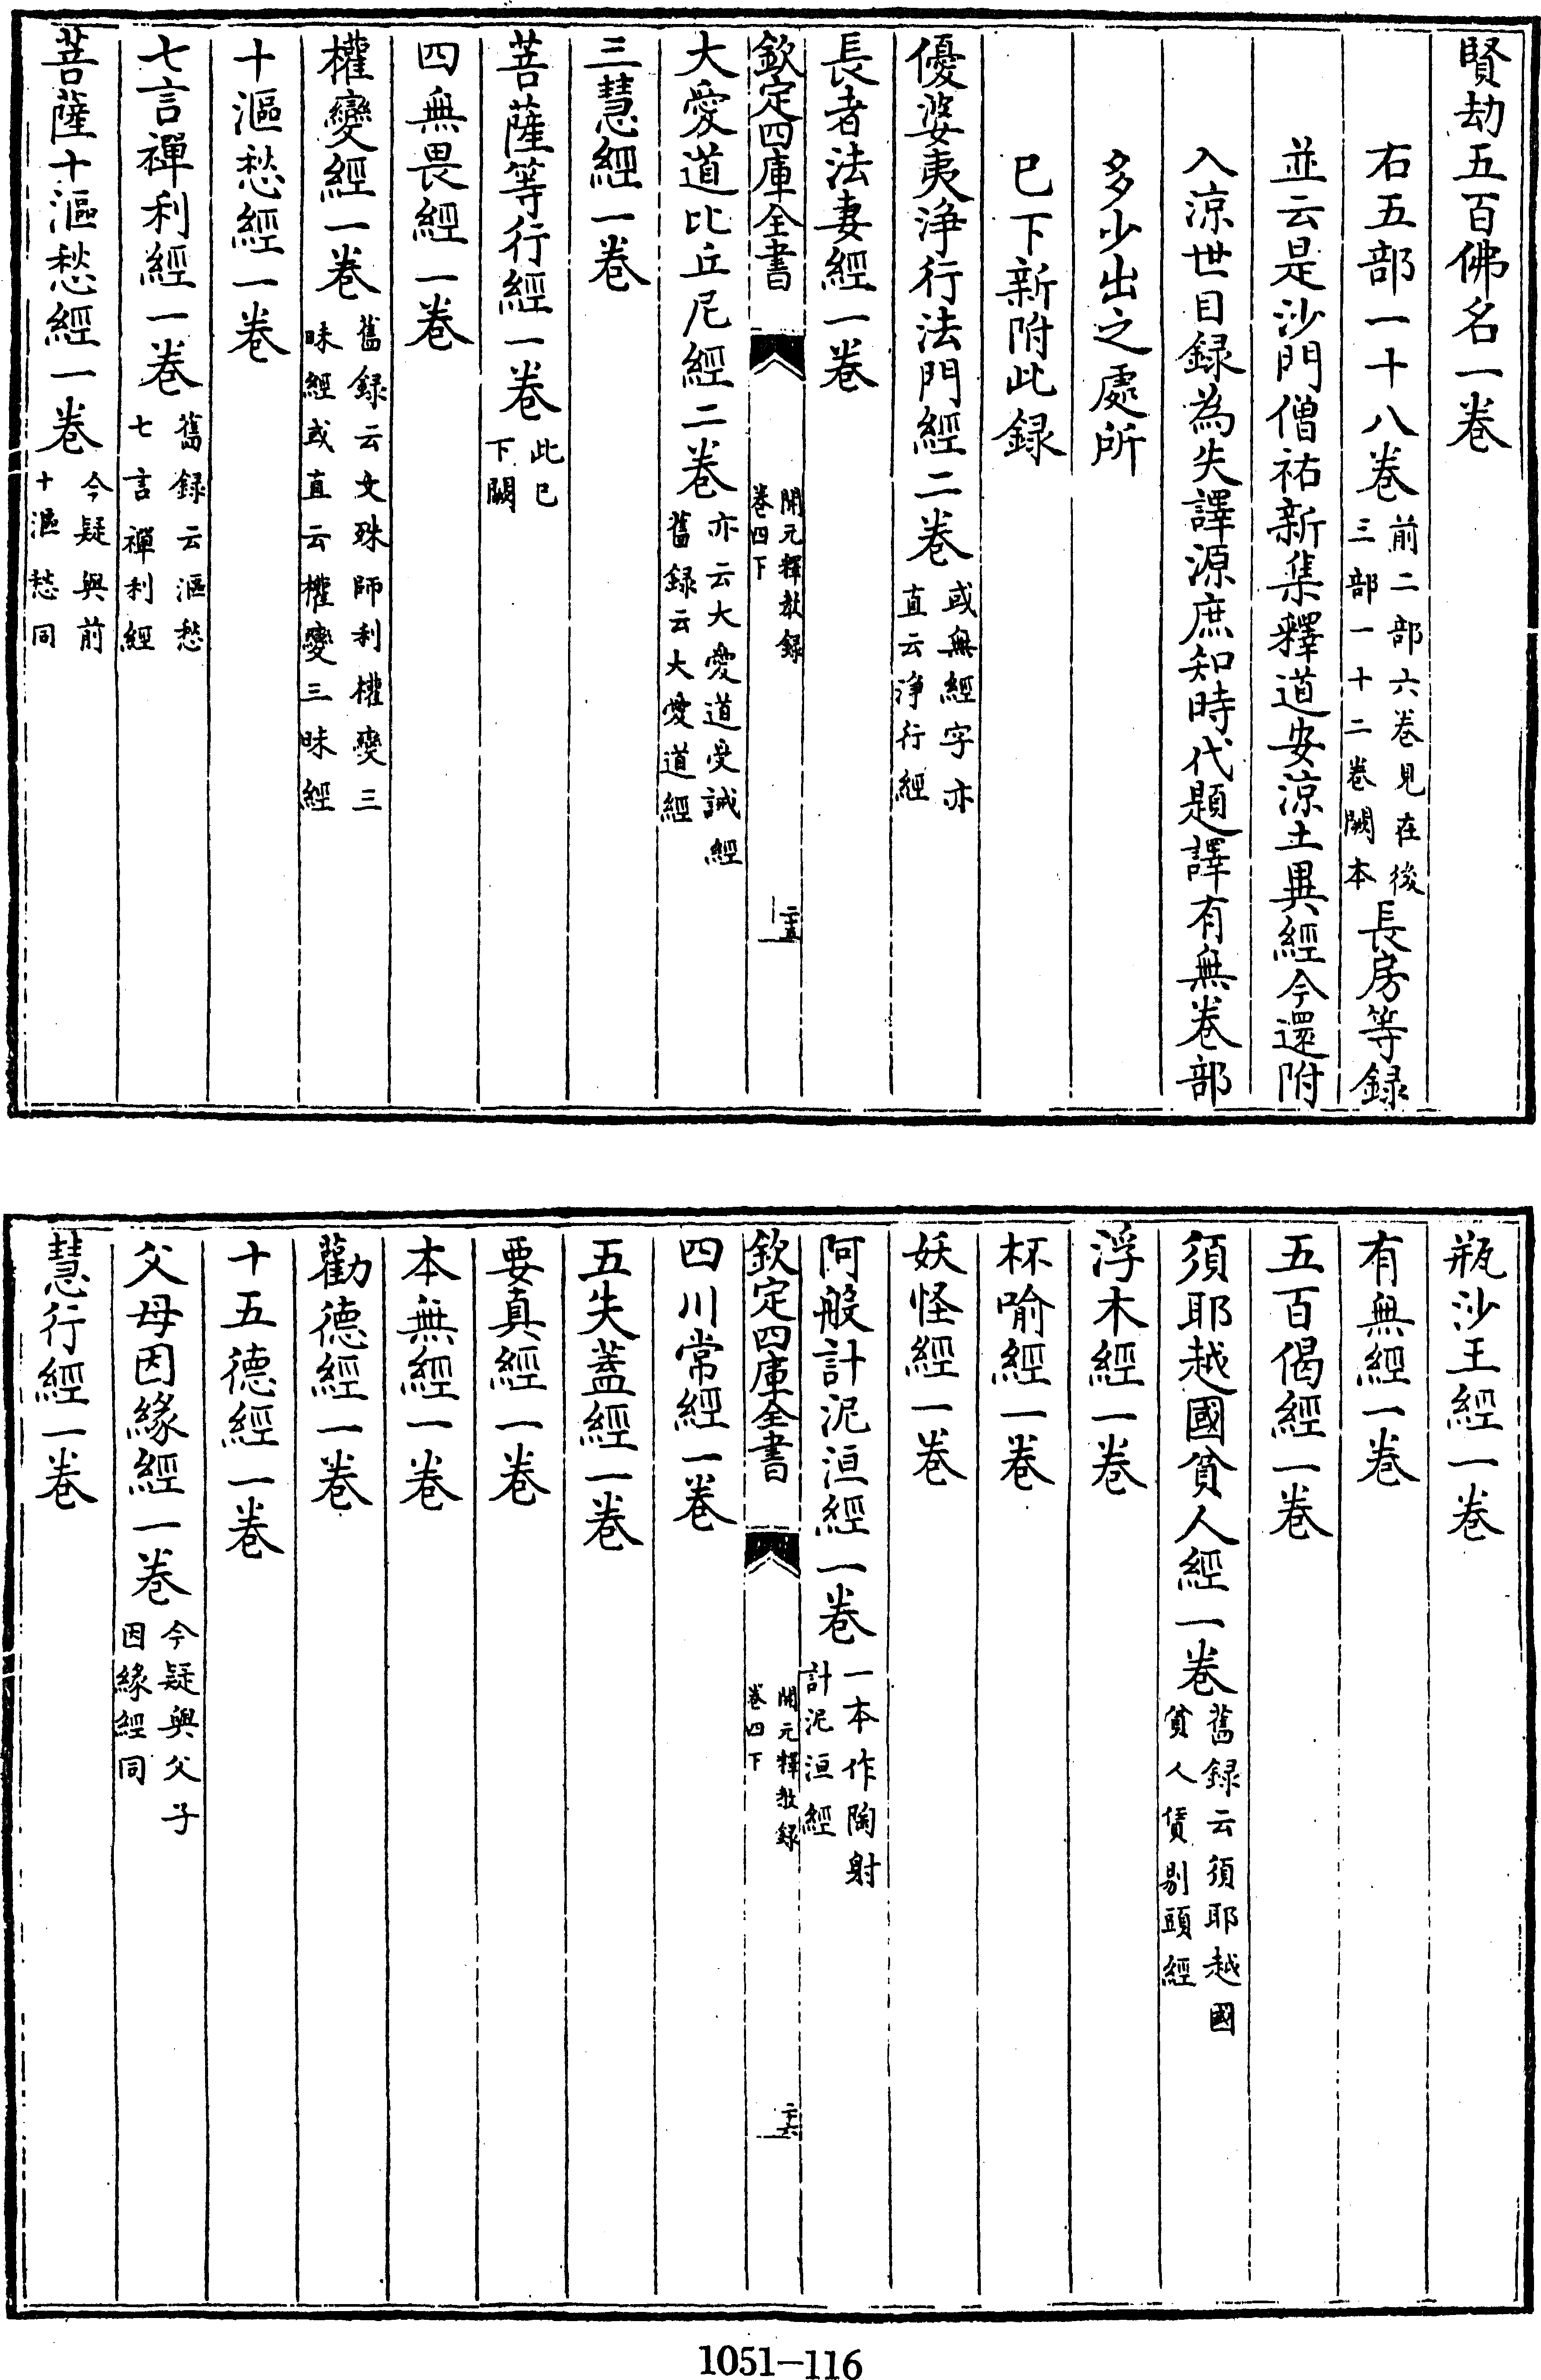 賢劫五百佛名一巻
右五部一十八巻前二部六巻見在後三部一十二巻闕本長房等録
並云是沙門僧祐新集釋道安涼土異經今還附
入涼世目録為失譯源庶知時代題譯有無巻部
多少出之處所
已下新附此録
優婆夷浄行法門經二巻或無經字亦直云浄行經
長者法妻經一巻
欽定四庫全書 開元釋教録巻四下 二十五
大愛道比丘尼經二巻亦云大愛道受誡經舊録云大愛道經
三慧經一巻
菩薩等行經一巻此已下闕
四無畏經一巻
權變經一巻舊録云文殊師利權變三昧經或直云權變三昧經
十漚愁經一巻
七言禪利經一巻舊録云漚愁七言禪利經
菩薩十漚愁經一巻今疑與前十漚愁同
瓶沙王經一巻
有無經一巻
五百偈經一巻
須耶越國貧人經一巻舊録云須耶越國貧人賃剔頭經
浮木經一巻
杯喻經一巻
妖怪經一巻
阿般計泥洹經一巻一本作陶射計泥洹經
欽定四庫全書 開元釋教録巻四下 二十六
四川常經一巻
五失蓋經一巻
要真經一巻
本無經一巻
勸德經一巻
十五德經一巻
父母因緣經一巻今疑與父子因緣經同
慧行經一巻
1051-116